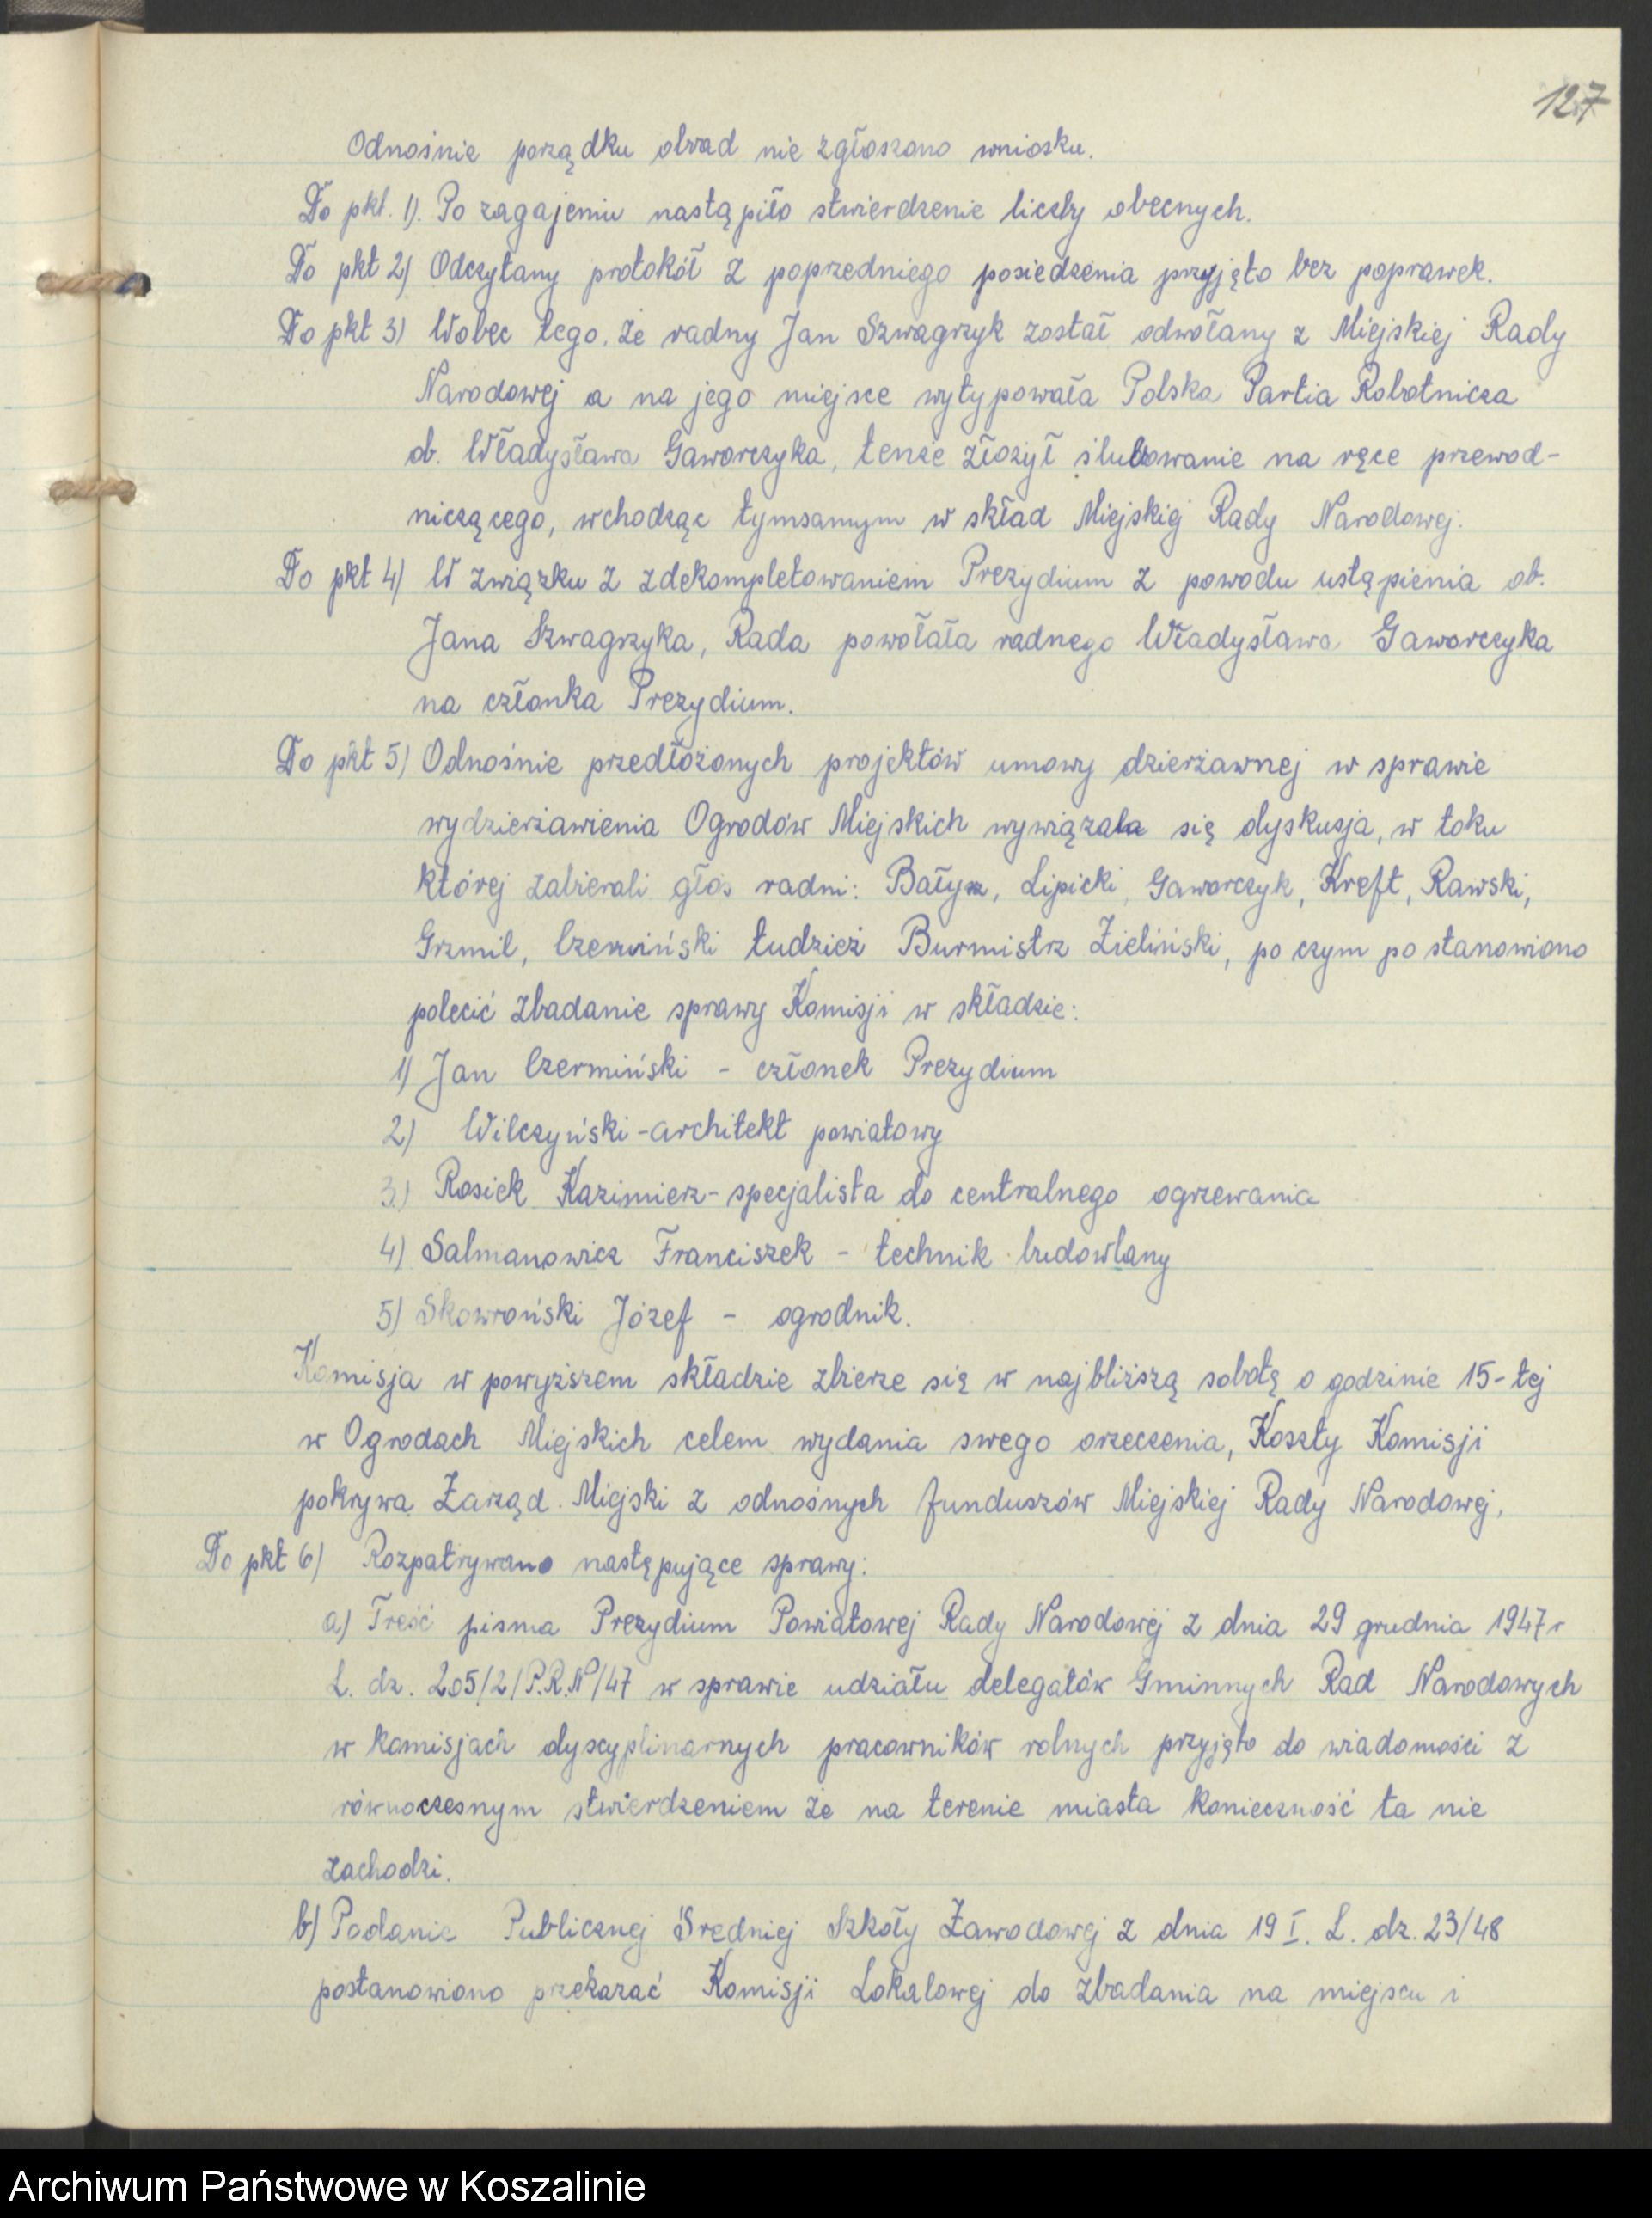 127
Odnośnie porządku obrad nie zgłoszono wniosku.
Do pkt. 1). Po zagajeniu nastąpiło stwierdzenie liczby obecnych.
Do pkt 2) Odczytany protokół z poprzedniego posiedzenia przyjęto bez poprawek.
Do pkt 3) Wobec tego, że radny Jan Szwagrzyk został odwołany z Miejskiej Rady
Narodowej a na jego miejsce wytypowała Polska Partia Robotnicza
ob. Władysława Gaworczyka, tenże złożył ślubowanie na ręce przewod-
niczącego, wchodząc tymsamym w skład Miejskiej Rady Narodowej.
Do pkt 4) W związku z zdekompletowaniem Prezydium z powodu ustąpienia ob.
Jana Szwagrzyka, Rada powołała radnego Władysława Gaworczyka
na członka Prezydium.
Do pkt 5) Odnośnie przedłożonych projektów umowy dzierżawnej w sprawie
wydzierżawienia Ogrodów Miejskich wywiązała się dyskusja, w toku
której zabierali głos radni: Bałysz, Lipicki, Gaworczyk, Kreft, Rawski,
Grzmil, Czermiński tudzież Burmistrz Zieliński, po czym postanowiono
polecić zbadanie sprawy Komisji w składzie:
1) Jan Czermiński - członek Prezydium
2) Wilczyński - architekt powiatowy
3.) Rosiek Kazimierz - specjalista do centralnego ogrzewania
4) Salmanowicz Franciszek - technik budowlany
5) Skowroński Józef - ogrodnik.
Komisja w powyższem składzie zbierze się w najbliższą sobotę o godzinie 15-tej
w Ogrodach Miejskich celem wydania swego orzeczenia, Koszty Komisji
pokrywa Zarząd Miejski z odnośnych funduszów Miejskiej Rady Narodowej.
Do pkt 6) Rozpatrywano następujące sprawy:
a) Treść pisma Prezydium Powiatowej Rady Narodowej z dnia 29 grudnia 1947 r
L. dz. 205/2/P.R.N/47 w sprawie udziału delegatów Gminnych Rad Narodowych
w komisjach dyscyplinarnych pracowników rolnych przyjęto do wiadomości z
równoczesnym stwierdzeniem że na terenie miasta konieczność ta nie
zachodzi.
b) Podanie Publicznej Średniej Szkoły Zawodowej z dnia 19 I. L. dz. 23/48
postanowiono przekazać Komisji Lokalowej do zbadania na miejscu i
Archiwum Państwowe w Koszalinie